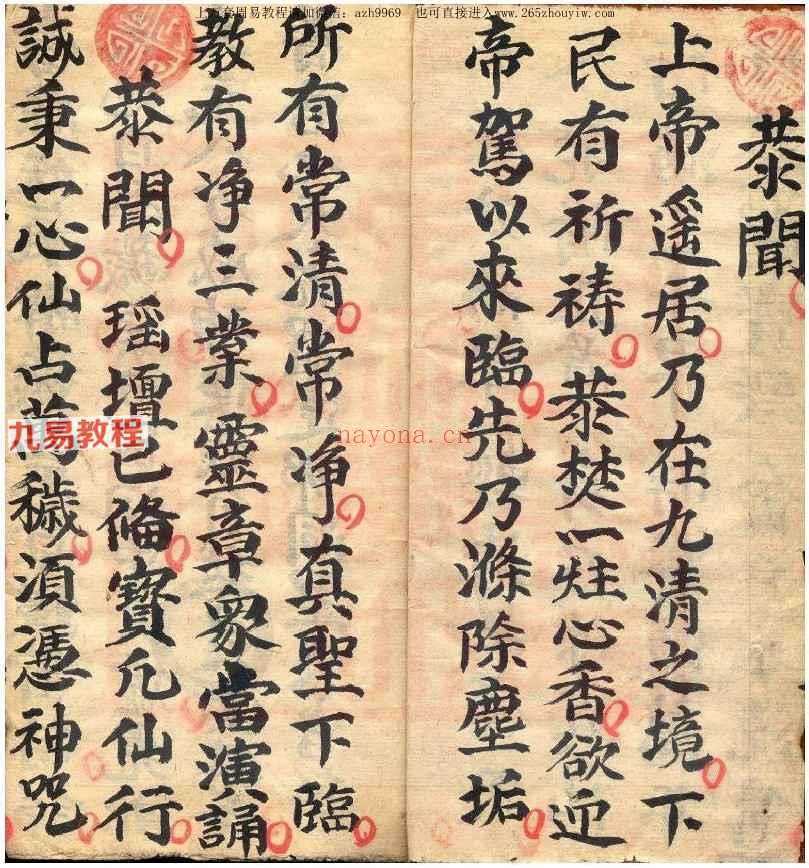 周易教程 加微信：azh9969 也可直接进入www.265zhouyiw.com
恭聞
上帝遥居乃在九清之境下
民有祈祷恭焚一炷心香欲迎
帝駕以來臨先乃滌除塵垢
所有常清常净真聖下臨
教有净三業靈章眾當演誦
恭聞瑶壇已俻寳几仙行
誠秉一心仙占穢須憑神咒
九易教程
nayona.cn